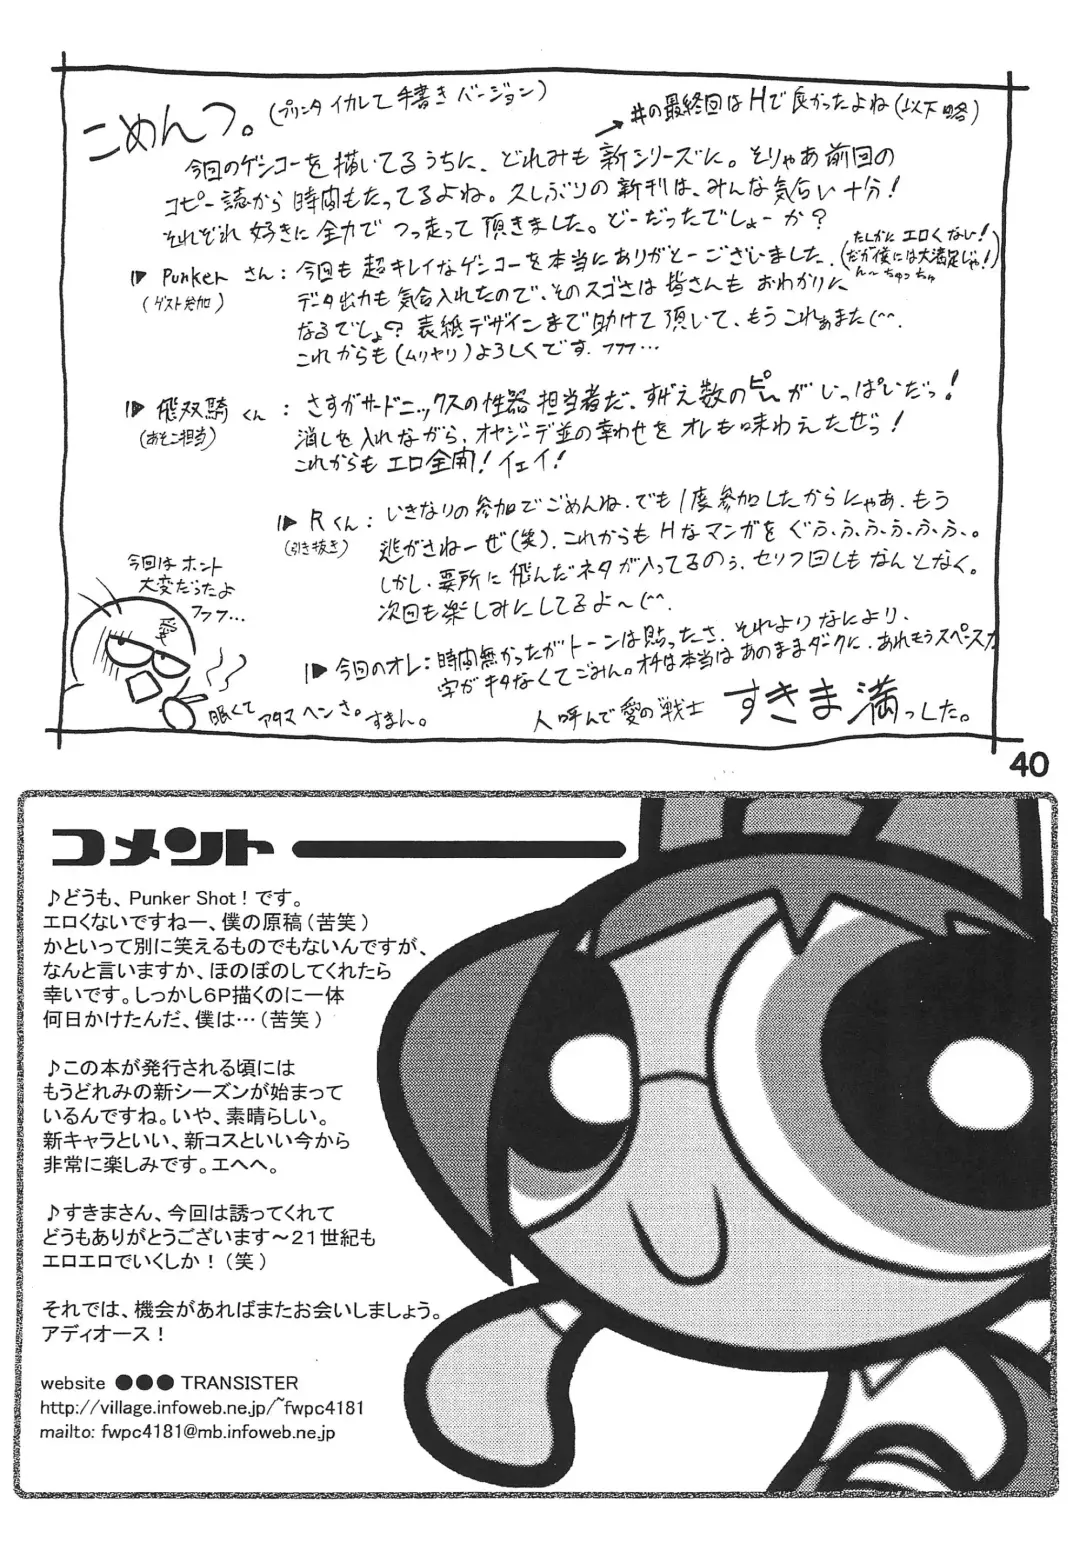 ごめんっ。(プリンタイカレて手書きバージョン)
→#の最終回はHで良かったよね(以下略)
今回のゲンコーを描いてるうちに、どれみも新シリーズに。そりゃあ前回の
コピー誌から時間もたってるよね。久しぶりの新刊は、みんな気合い十分!
それぞれ好きに全力でつっ走って頂きました。どーだったでしょーか?
▶Punkerさん:今回も超キレイなゲンコーを本当にありがとーございました。
(ゲスト参加)
(たしかにエロくない!
だが俺には大満足じゃ!)
ん〜ちゅっちゅ
データ出力も気合入れたので、そのスゴさは皆さんもおわかりに
なるでしょ?表紙デザインまで助けて頂いて、もうこれぁまた(^^.
これからも(ムリヤリ)よろしくです.フフフ…
▶飛双騎くん:さすがサードニックスの性器担当者だ、すげえ数のピーがいっぱいだっ!
(あそこ担当)
消しを入れながら、オヤジーデ並の幸わせをオレも味わえたぜっ!
これからもエロ全開!イェイ!
▶Rくん:いきなりの参加でごめんね.でも1度参加したからにゃあ.もう
(引き抜き)
逃がさねーぜ(笑).これからもHなマンガをぐふ、ふ、ふ、ふ、ふ、ふ、。
しかし、要所に飛んだネタが入ってるのぅ、セリフ回しもなんとなく。
次回も楽しみにしてるよ〜(^^
▶今回のオレ:時間無かったがトーンは貼ったさ、それよりなにより、
字がキタなくてごみん。オチは本当はあのままダークに、あれもうスペースが
人呼んで愛の戦士 すきま満っした。
今回はホント
大変だったよ
フフフ…
愛
眠くてアタマヘンさ。すまん。
40
コメント
♪どうも、Punker Shot!です。
エロくないですねー、僕の原稿(苦笑)
かといって別に笑えるものでもないんですが、
なんと言いますか、ほのぼのしてくれたら
幸いです。しっかし6P描くのに一体
何日かけたんだ、僕は…(苦笑)
♪この本が発行される頃には
もうどれみの新シーズンが始まって
いるんですね。いや、素晴らしい。
新キャラといい、新コスといい今から
非常に楽しみです。エヘヘ。
♪すきまさん、今回は誘ってくれて
どうもありがとうございます〜21世紀も
エロエロでいくしか!(笑)
それでは、機会があればまたお会いしましょう。
アディオース!
website ●●● TRANSISTER
http://village.infoweb.ne.jp/~fwpc4181
mailto: fwpc4181@mb.infoweb.ne.jp